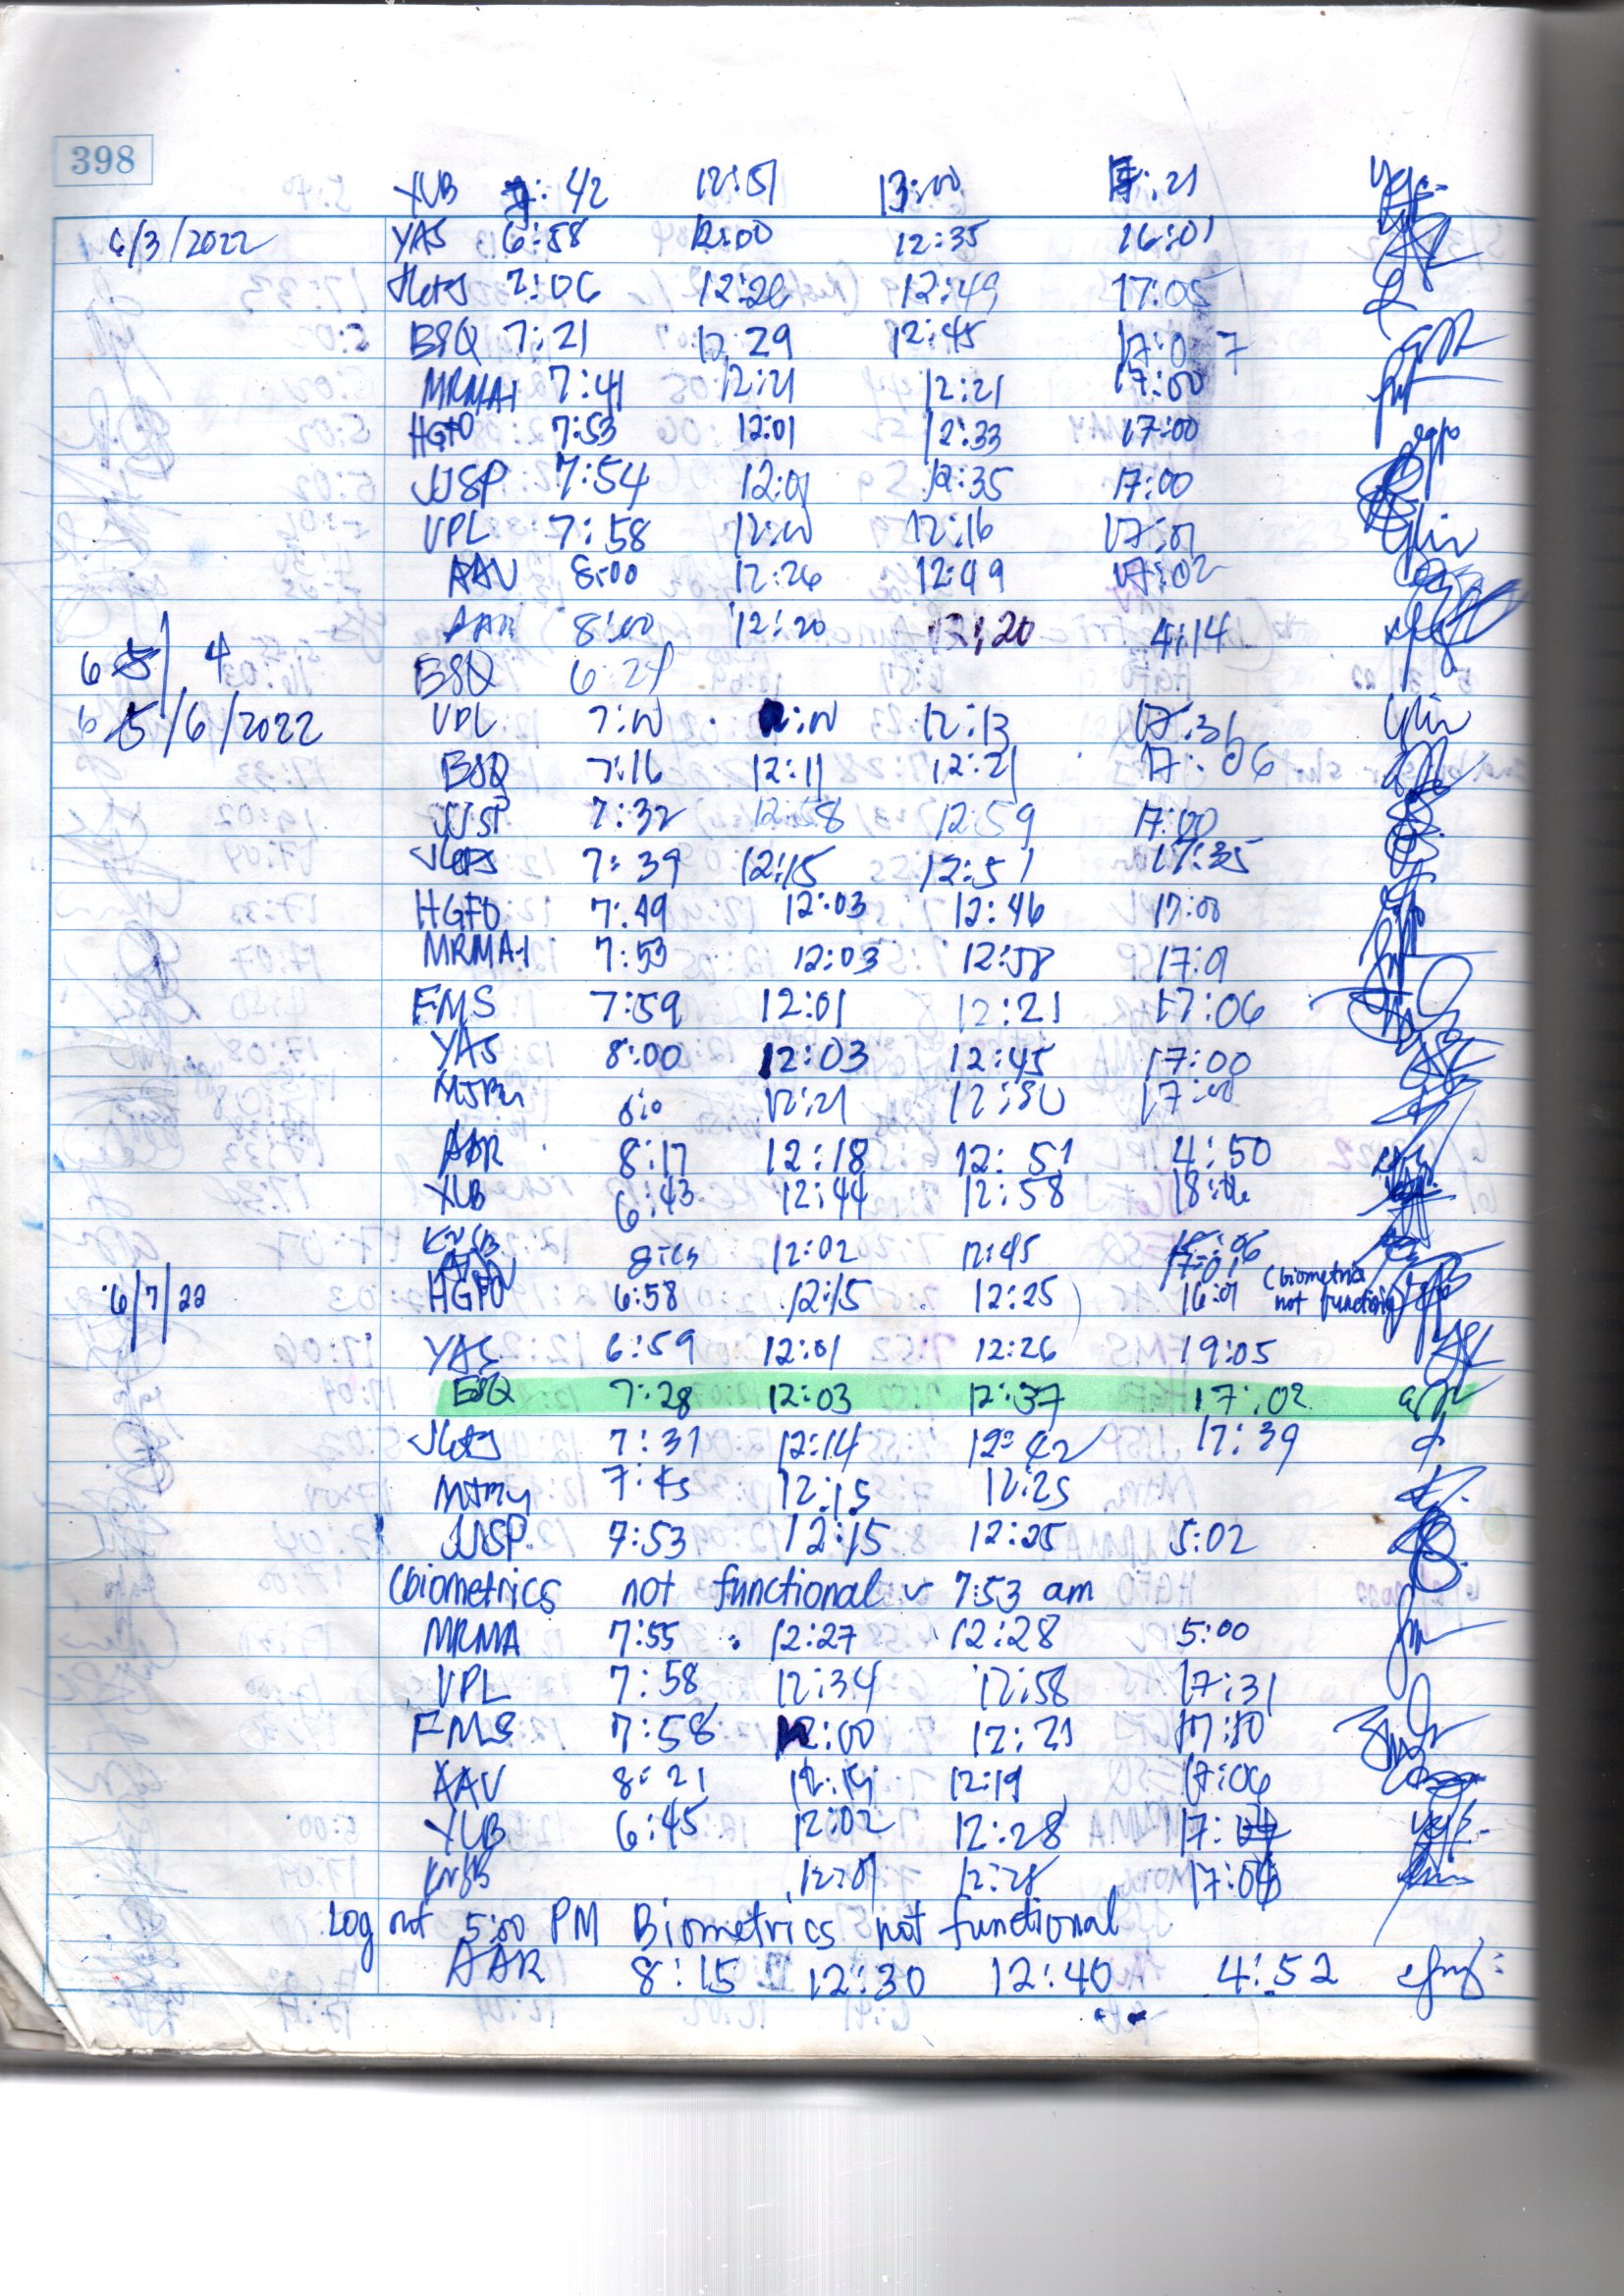 398
XUB 7:42 12:51 13:00 17:21
6/3/2022 YAS 6:58 12:00 12:35 16:01
7:06 12:26 12:49 17:05
BSQ 7:21 12:29 12:45 17:07
MRMA1 7:41 12:21 12:21 17:00
HGFO 7:53 12:01 12:33 17:00
JJSP 7:54 12:01 12:35 17:00
VPL 7:58 12:00 12:16 17:01
AAV 8:00 12:26 12:49 17:02
AAR 8:00 12:20 13:20 4:14
6/4 BSQ
6/6/2022 VPL 7:00 12:00 12:13 17:31
BSQ 7:16 12:11 12:21 17:06
JJSP 7:32 12:58 12:59 17:00
7:39 12:15 12:51 17:35
HGFO 7:49 12:03 12:46 17:00
MRMA1 7:53 12:03 12:58 17:01
FMS 7:59 12:01 12:21 17:06
YAS 8:00 12:03 12:45 17:00
12:21 17:00
AAR 8:17 12:18 12:51 4:50
XUB 6:43 12:44 12:58
12:02 12:45
6/7/22 HGFO 6:58 12:15 12:25 16:01 (biometrics
not functioning)
YAS 6:59 12:01 12:26 19:05
BSQ 7:28 12:03 12:37 17:02
7:31 12:14 12:42 17:39
7:45 12:15 12:25
JJSP 7:53 12:15 12:25 5:02
(biometrics not functional 7:53 am
MRMA 7:55 12:27 12:28 5:00
VPL 7:58 12:34 12:58 17:31
FMS 7:58 12:00 12:21 17:10
AAV 8:21 12:19 12:19 17:06
XUB 6:45 12:02 12:28
12:01 12:28
Log out 5:00 PM Biometrics not functional
AAR 8:15 12:30 12:40 4:52